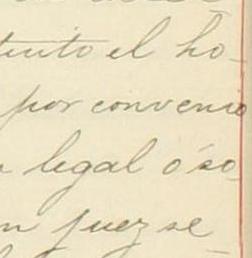 tinto el ho-
por convenio
legal ó so-
juez se